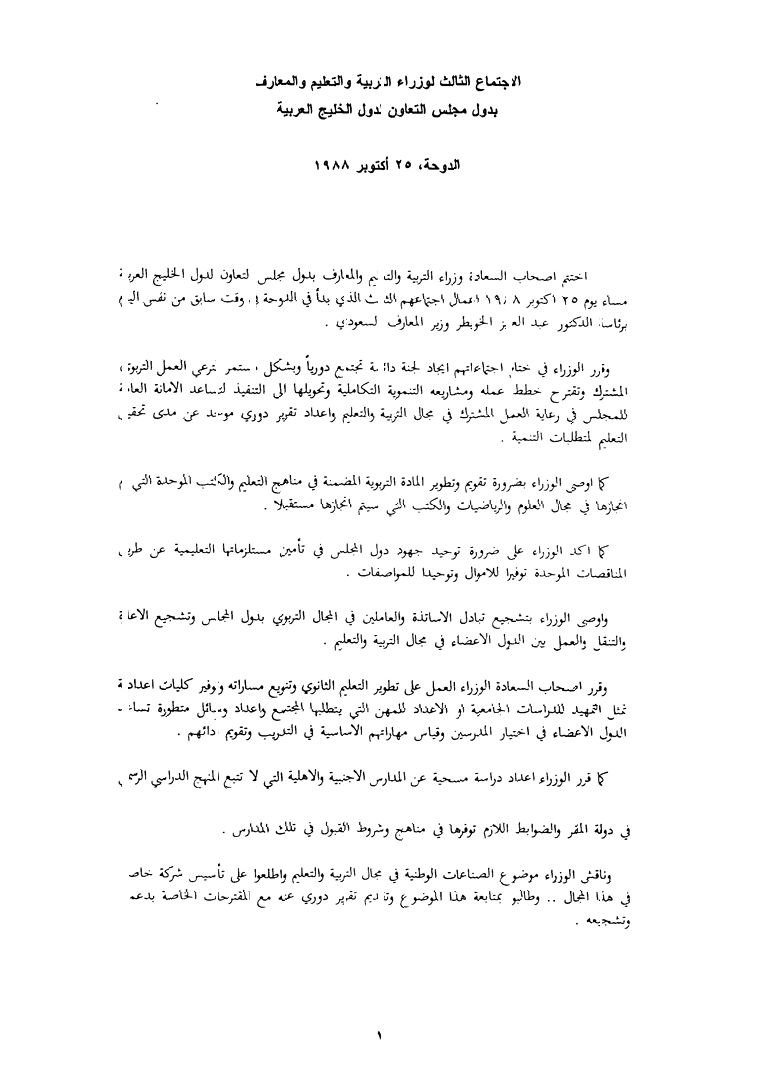 الاجتماع الثالث لوزراء التربية والتعليم والمعارف
بدول مجلس التعاون لدول الخليج العربية
الدوحة، ٢٥ أكتوبر ١٩٨٨
اختتم اصحاب السعادة وزراء التربية والتعليم والمعارف بدول مجلس التعاون لدول الخليج العربية
مساء يوم ٢٥ اكتوبر ١٩٨٨ اعمال اجتماعهم الثالث الذي بدأ في الدوحة في وقت سابق من نفس اليوم
برئاسة الدكتور عبد العزيز الخويطر وزير المعارف السعودي .
وقرر الوزراء في ختام اجتماعاتهم ايجاد لجنة دائمة تجتمع دورياً وبشكل مستمر ترعي العمل التربوي
المشترك وتقترح خطط عمله ومشاريعه التنموية التكاملية وتحويلها الى التنفيذ لتساعد الامانة العامة
للمجلس في رعاية العمل المشترك في مجال التربية والتعليم واعداد تقرير دوري موحد عن مدى تحقيق
التعليم لمتطلبات التنمية .
كما اوصى الوزراء بضرورة تقويم وتطوير المادة التربوية المضمنة في مناهج التعليم والكتب الموحدة التي تم
انجازها في مجال العلوم والرياضيات والكتب التي سيتم انجازها مستقبلا .
كما اكد الوزراء على ضرورة توحيد جهود دول المجلس في تأمين مستلزماتها التعليمية عن طريق
المناقصات الموحدة توفيرا للاموال وتوحيدا للمواصفات .
واوصى الوزراء بتشجيع تبادل الاساتذة والعاملين في المجال التربوي بدول المجلس وتشجيع الاعارة
والتنقل والعمل بين الدول الاعضاء في مجال التربية والتعليم .
وقرر اصحاب السعادة الوزراء العمل على تطوير التعليم الثانوي وتنويع مساراته وتوفير كليات اعدادية
تمثل التمهيد للدراسات الجامعية او الاعداد للمهن التي يتطلبها المجتمع واعداد وسائل متطورة تساعد
الدول الاعضاء في اختيار المدرسين وقياس مهاراتهم الأساسية في التدريب وتقويم ادائهم .
كما قرر الوزراء اعداد دراسة مسحية عن المدارس الاجنبية والاهلية التي لا تتبع المنهج الدراسي الرسمي
في دولة المقر والضوابط اللازم توفرها في مناهج وشروط القبول في تلك المدارس .
وناقش الوزراء موضوع الصناعات الوطنية في مجال التربية والتعليم واطلعوا على تأسيس شركة خاصة
في هذا المجال .. وطالبو بمتابعة هذا الموضوع وتقديم تقرير دوري عنه مع المقترحات الخاصة بدعمه
وتشجيعه .
١